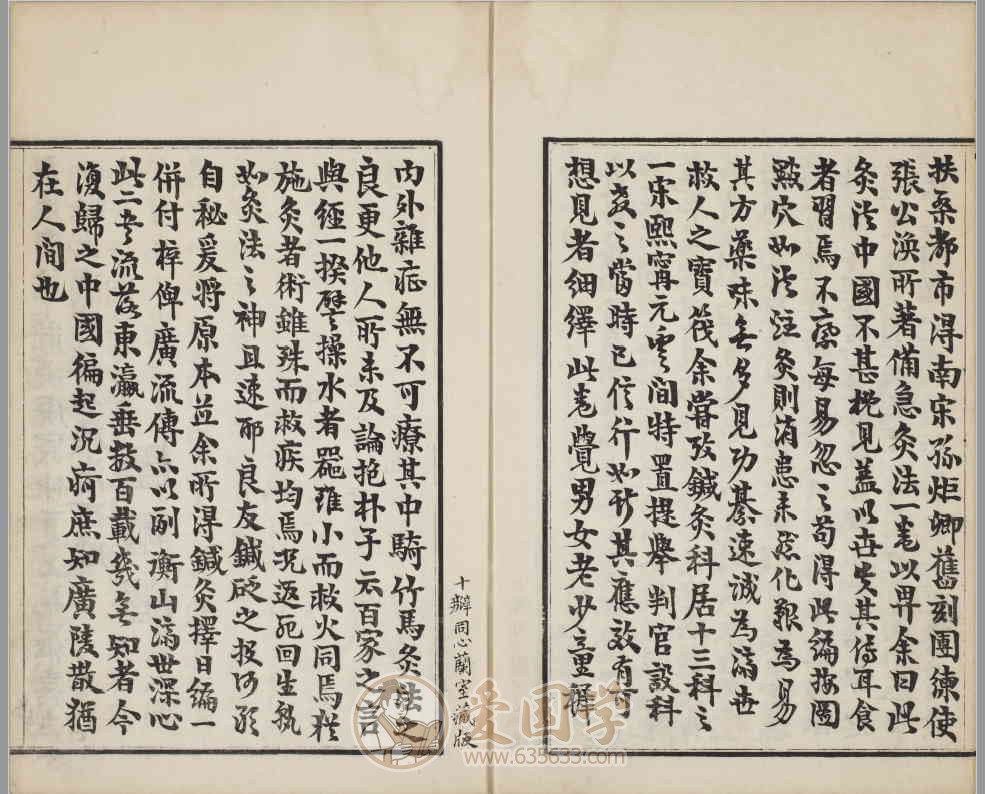 扶桑都市得南宋孫炬卿舊刻團練使
張公渙所著備急灸法一卷以畀余曰此
灸法中國不甚概見蓋以世失其傳耳食
者習焉不察每易忽之苟得此編按圖
點穴如法注灸則消患未然化艱為易
其方藥味無多見功綦速誠為濟世
救人之寶筏余嘗攷鍼灸科居十三科之
一宋熙甯元豐間特置提舉判官設科
以教之當時已信行如斯其應效有可
想見者細繹此卷覺男女老少童稺
內外雜症無不可療其中騎竹馬灸法之
良更他人所未及論抱朴子云百家之言
與經一揆譬之操水者器雖小而救火同焉猶
施灸者術雖殊而救疾均焉況返死回生孰
如灸法之神且速耶良友鍼砭之投何敢
自秘爰將原本並余所得鍼灸擇日編一
併付梓俾廣流傳亦以副衡山濟世深心
此二書流落東瀛垂數百載幾無知者今
復歸之中國徧起沉疴庶知廣陵散猶
在人間也
十瓣同心蘭室藏版
爱国学
www.635633.com